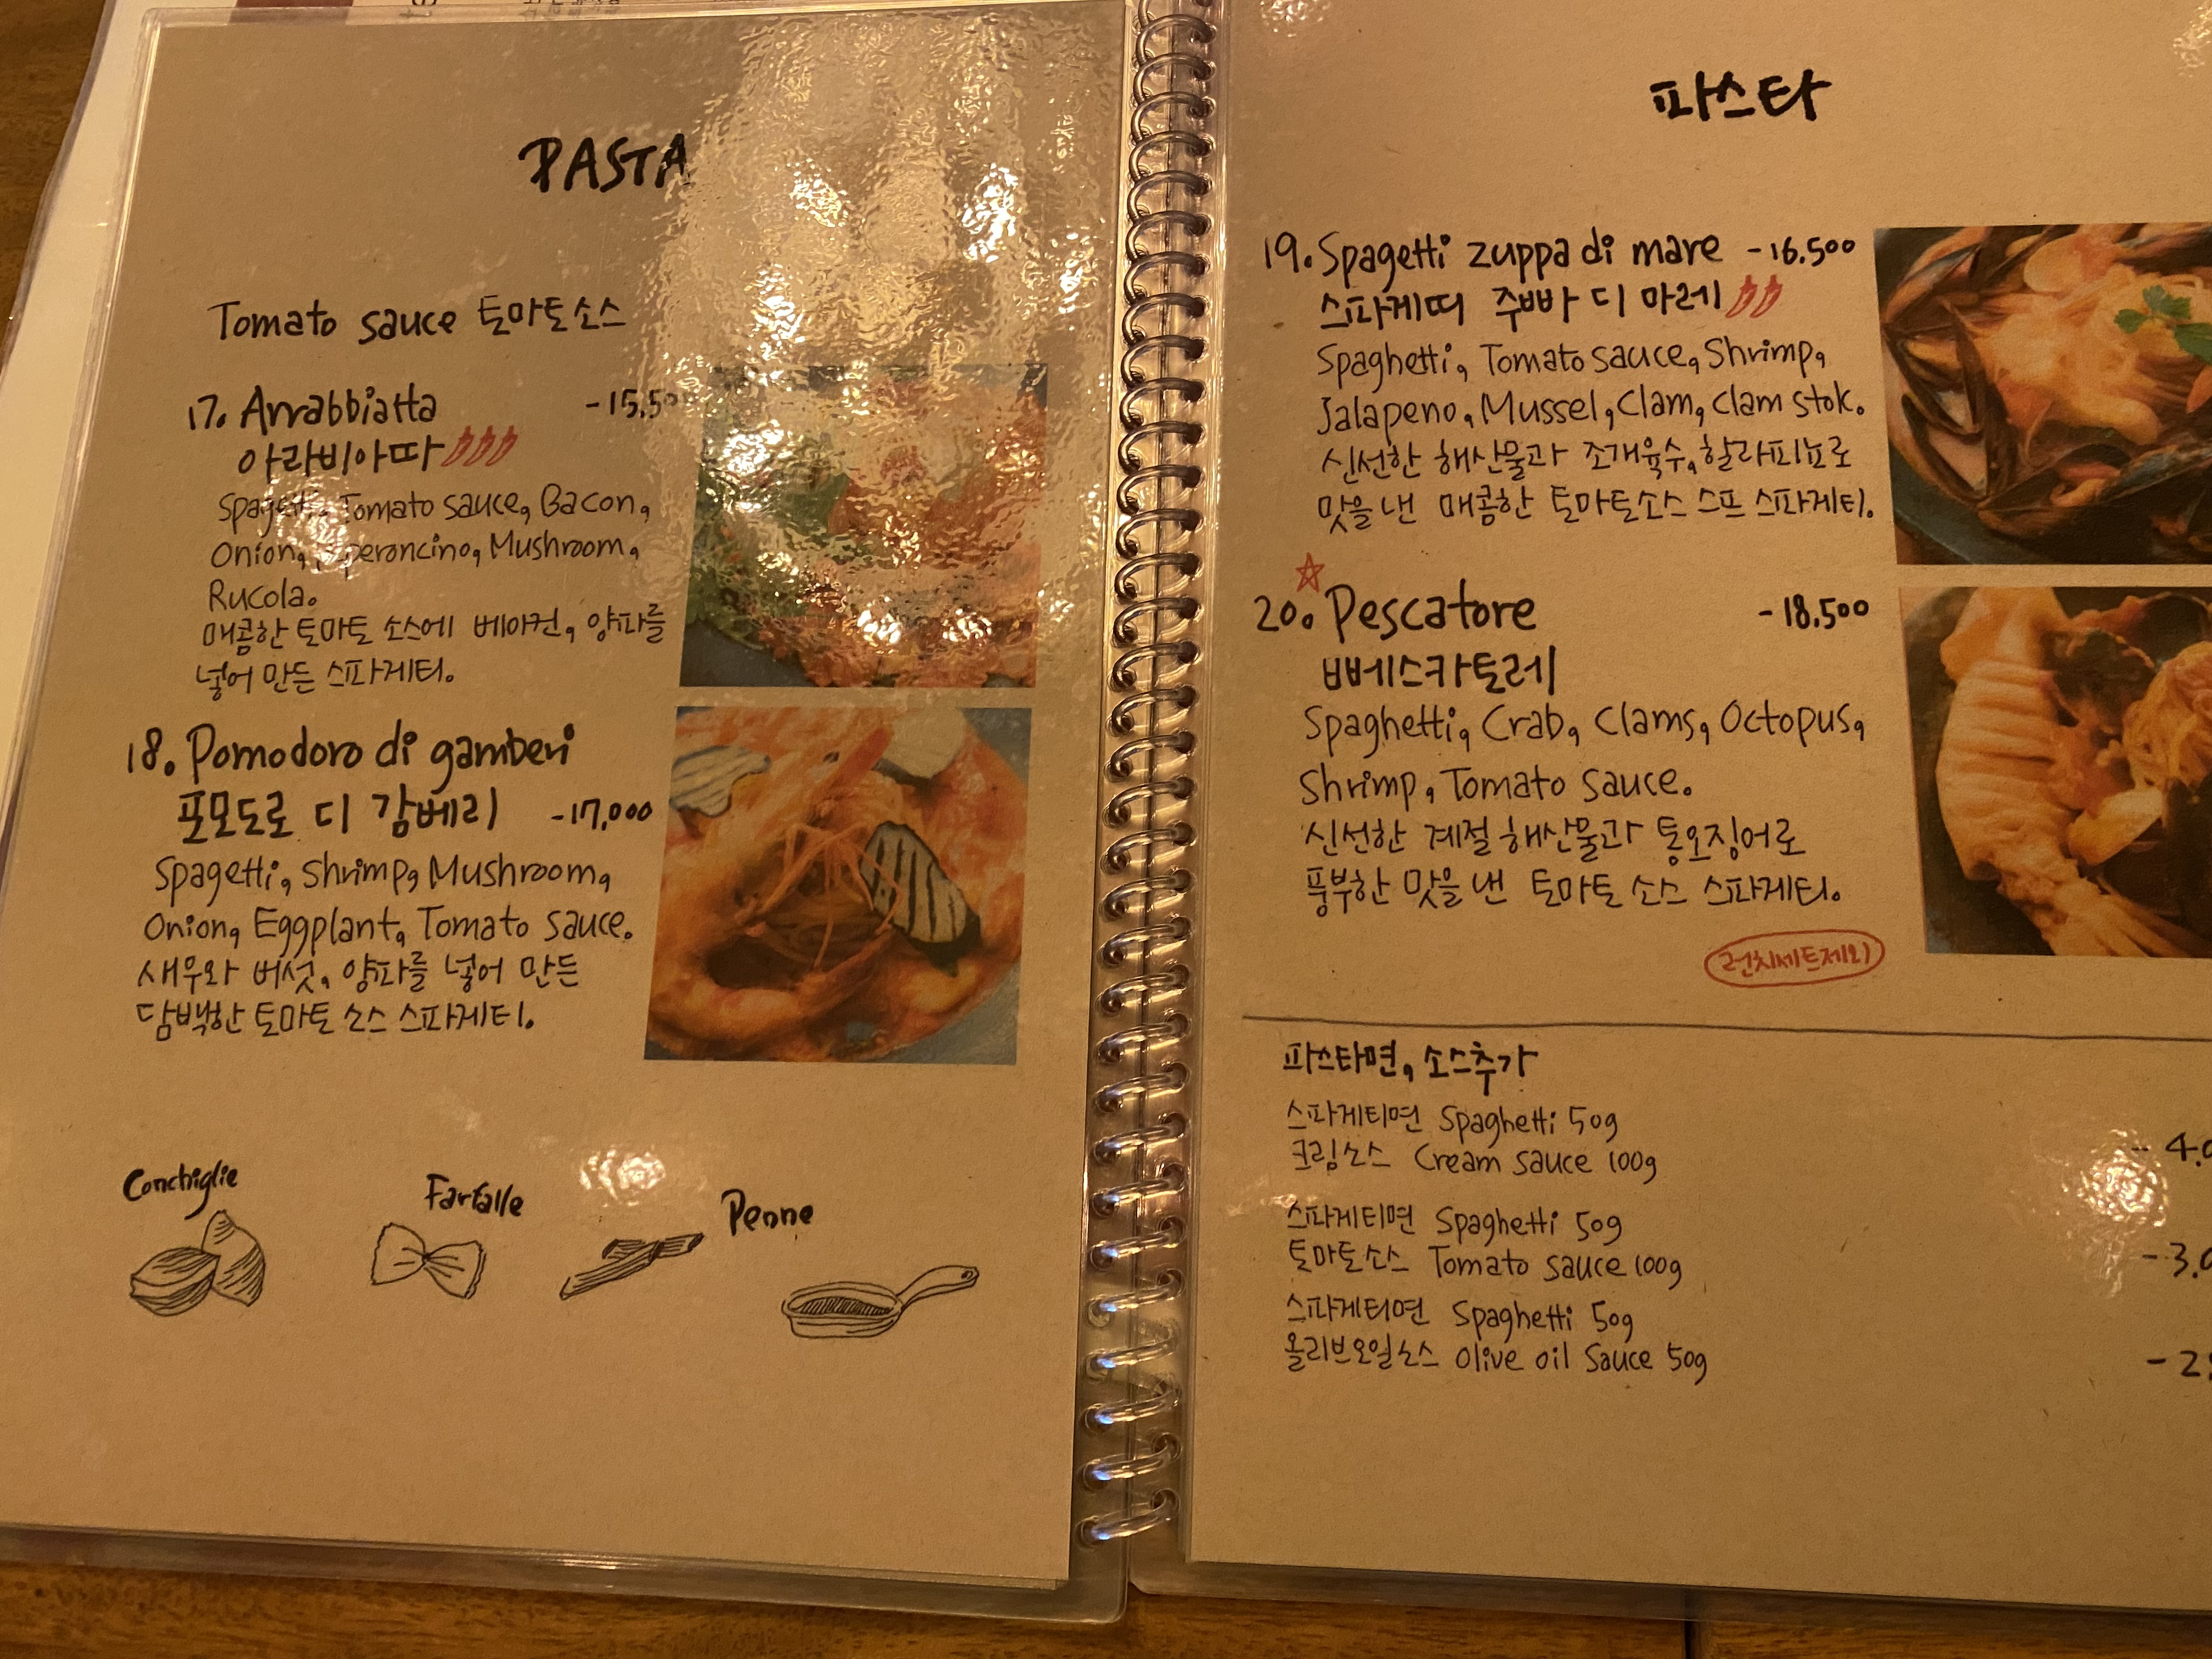 PASTA
Tomato sauce 토마토소스
17. Arrabbiatta
아라비아따
Tomato sauce, Bacon,
Onion, Mushroom,
Rucola.
매콤한 토마토 소스에 베이컨, 양파를
넣어 만든 스파게티.
18. Pomodoro di gamberi
포모도로 디 감베리 -17,000
Spagetti, Shrimp, Mushroom,
Onion, Eggplant, Tomato sauce.
새우와 버섯, 양파를 넣어 만든
담백한 토마토 소스 스파게티.
Conchiglie
Farfalle
Penne
파스타
19. Spagetti zuppa di mare -16.500
스파게띠 주빠 디 마레
Spaghetti, Tomato sauce, Shrimp,
Jalapeno, Mussel, Clam, Clam stok.
신선한 해산물과 조개육수, 할라피뇨로
맛을 낸 매콤한 토마토소스 스프 스파게티.
20. Pescatore -18.500
뻬스카토레
Spaghetti, Crab, Clams, Octopus,
Shrimp, Tomato sauce.
신선한 계절 해산물과 통오징어로
풍부한 맛을 낸 토마토 소스 스파게티.
런치세트제외
파스타면, 소스추가
스파게티면 Spaghetti 50g
크림소스 Cream sauce 100g
스파게티면 Spaghetti 50g
토마토소스 Tomato sauce 100g
스파게티면 Spaghetti 50g
올리브오일소스 Olive oil Sauce 50g